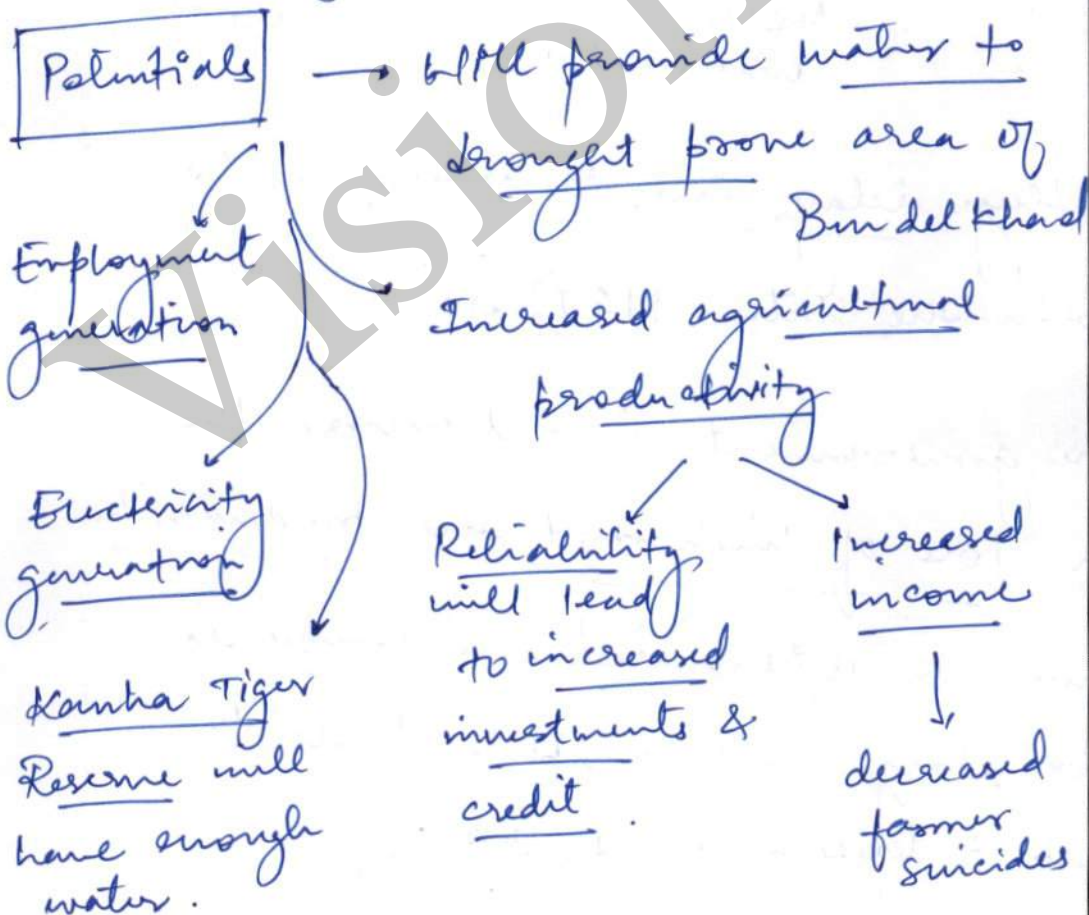 Potentials → Will provide water to
drought prone area of
Bundelkhand
Employment
generation
Increased agricultural
productivity
Electricity
generation
Reliability
will lead
to increased
investments &
credit.
Increased
income
↓
decreased
farmer
suicides
Kanha Tiger
Reserve will
have enough
water.
Vision